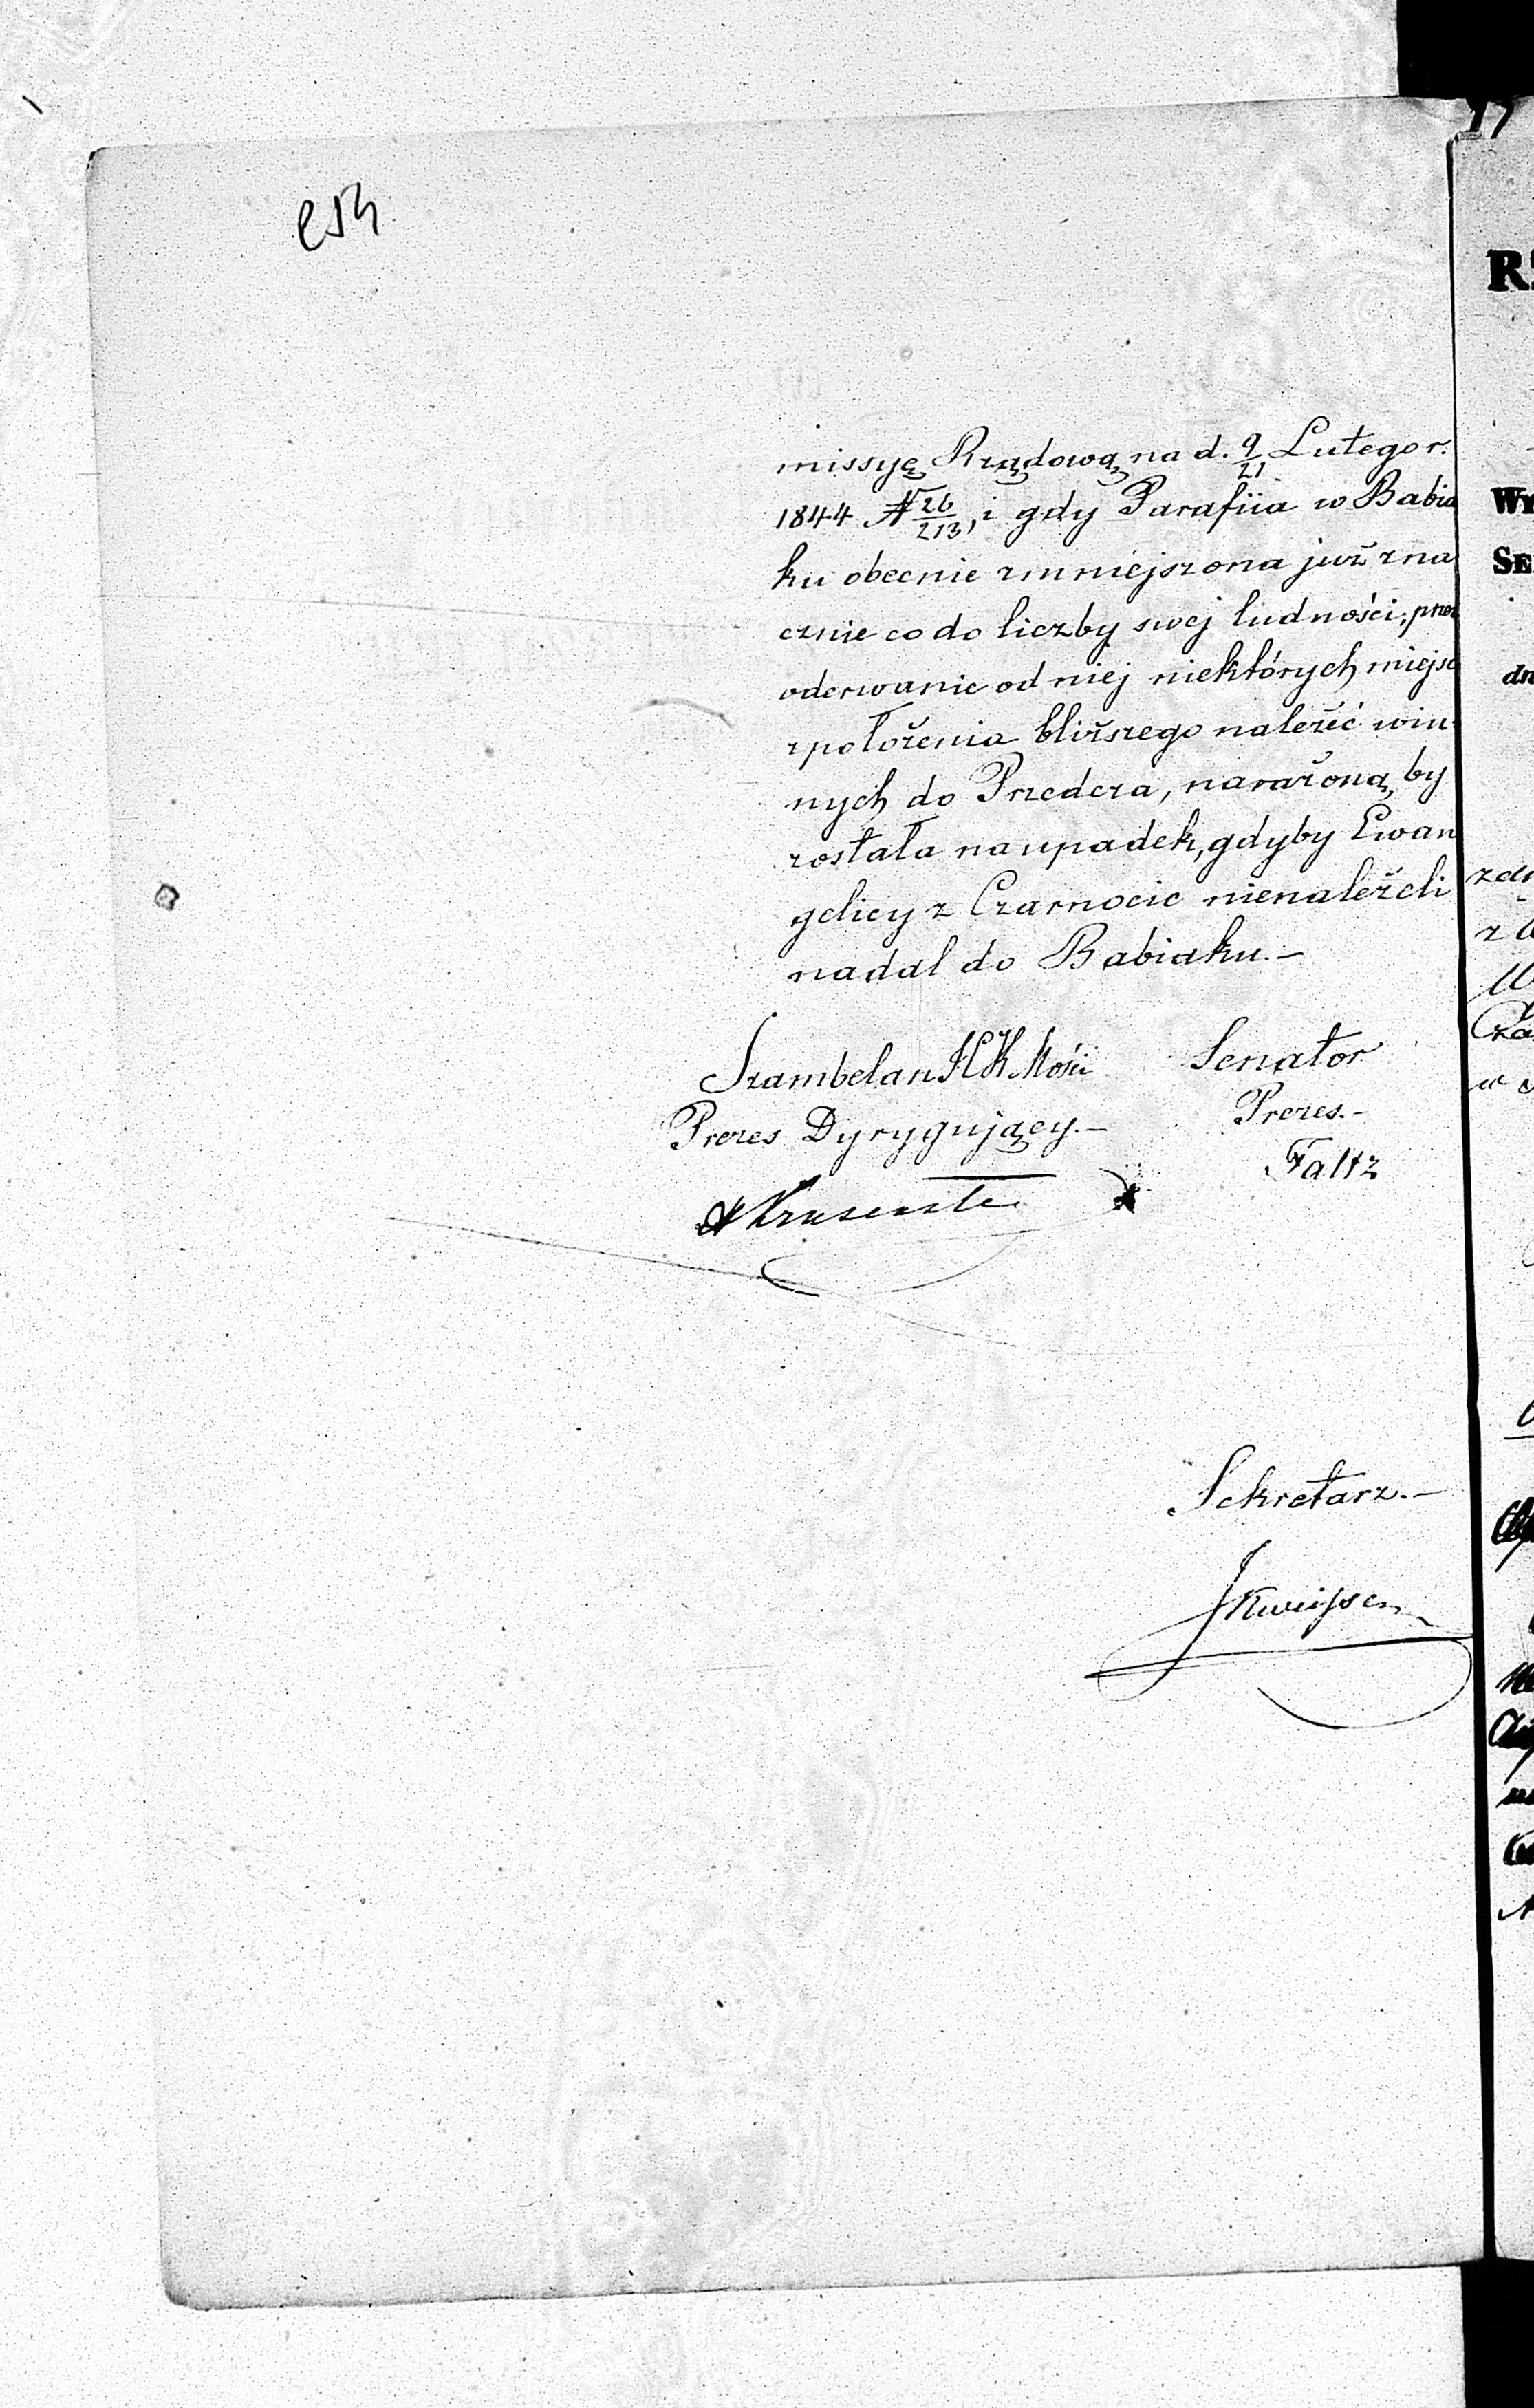 missyę Rządową na d. 9/21 Lutego r.
1844 N 26/213, i gdy Parafiia w Babia
ku obecnie zmniejszona już zna
cznie co do liczby swej ludności, prze
oderwanie od niej niektórych miejsc
z położenia bliższego należéć win
nych do Przedcza, narażoną by
została na upadek, gdyby Ewan
gelicy z Czarnocic nienależeli
nadal do Babiaku.—
Szambelan JCK Mości
Prezes Dyrygujący.—
Senator
Prezes.—
Faltz
Sekretarz.—